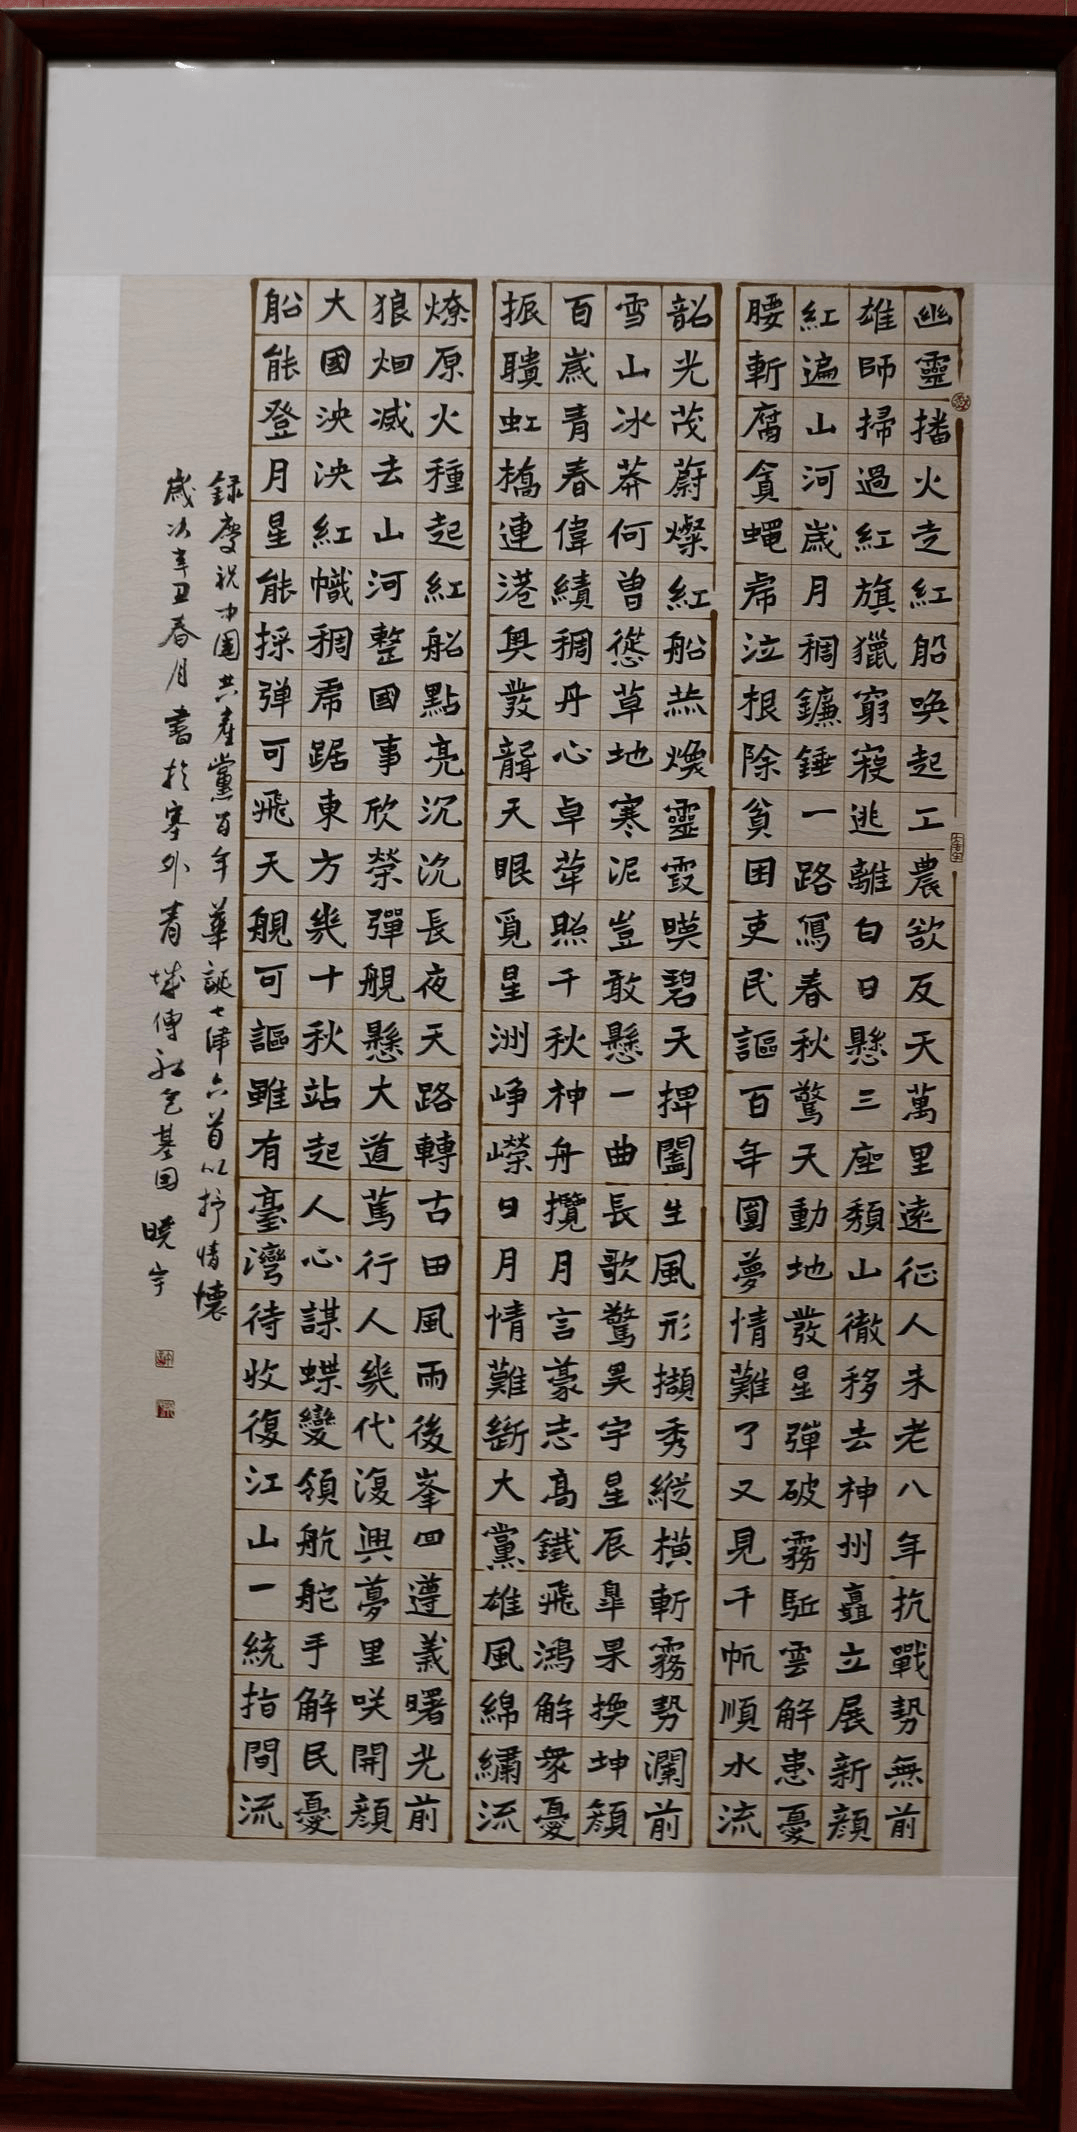 幽靈播火走紅船喚起工農欲反天萬里遠征人未老八年抗戰勢無前
雄師掃過紅旗獵窮寇逃離白日懸三座頹山徹移去神州矗立展新顏
紅遍山河歲月稠鐮錘一路寫春秋驚天動地發星彈破霧駈雲解患憂
腰斬腐貪蠅虎泣根除貧困吏民謳百年圓夢情難了又見千帆順水流
韶光茂蔚燦紅船燕煥靈霞暎碧天捭闔生風形擷秀縱橫斬霧勢瀾前
雪山冰莽何曾愆草地寒泥豈敢懸一曲長歌驚昊宇星辰皐果換坤顏
百歲青春偉績稠丹心卓犖照千秋神舟攬月言豪志高鐵飛鴻解衆憂
振聵虹橋連港奧發聾天眼覓星洲崢嶸日月情難斷大黨雄風綿繡流
燎原火種起紅船點亮沉沉長夜天路轉古田風雨後峯回遵義曙光前
狼烟滅去山河整國事欣榮彈覥懸大道篤行人幾代復興夢里咲開顏
大國泱泱紅幟稠虎踞東方幾十秋站起人心謀蝶變領航舵手解民憂
船能登月星能採弹可飛天覥可謳雖有臺灣待收復江山一統指間流
録慶祝中國共產黨百年華誕七律六首以抒情懷
歲次辛丑春月書於塞外青城傳紅色基因 曉宇